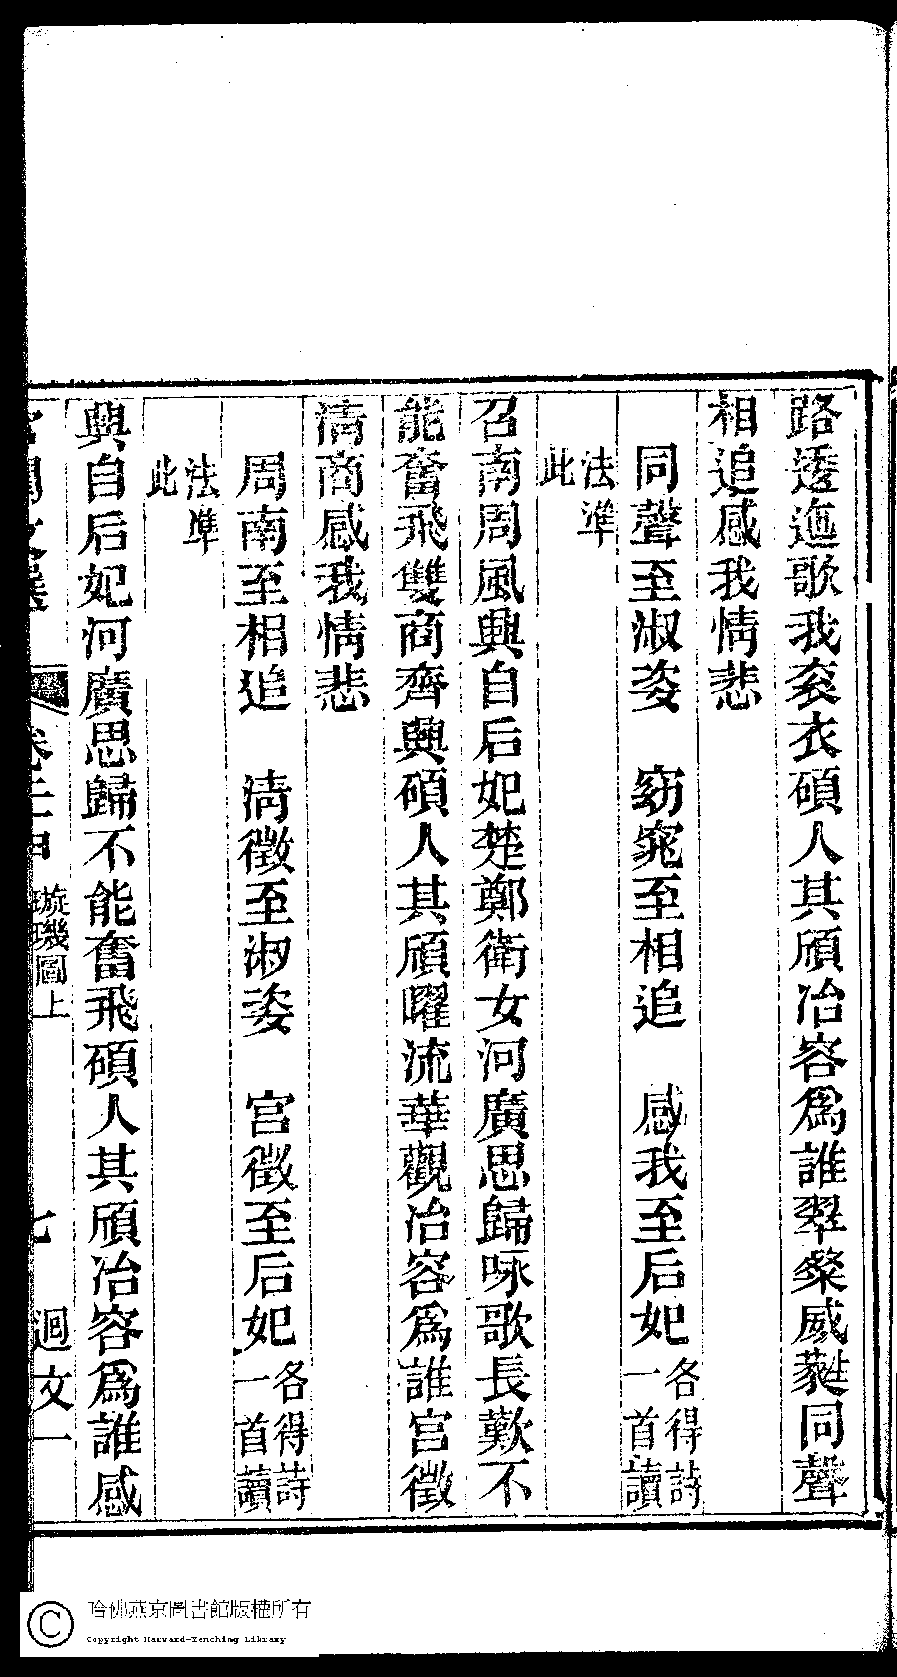 路逶迤歌我袞衣碩人其頎冶容爲誰翠粲威蕤同聲
相追感我情悲
同聲至淑姿　窈窕至相追　感我至后妃　各得詩一首讀
法準此
召南周風興自后妃楚鄭衛女河廣思歸咏歌長歎不
能奮飛雙商齊興碩人其頎曜流華觀冶容爲誰宮徵
清商感我情悲
周南至相追　清徵至淑姿　宮徵至后妃　各得詩一首讀
法準此
興自后妃河廣思歸不能奮飛碩人其頎冶容爲誰感
卷二甲　璇璣圖上　七　迴文一
哈佛燕京圖書館版權所有
Copyright Harvard-Yenching Library